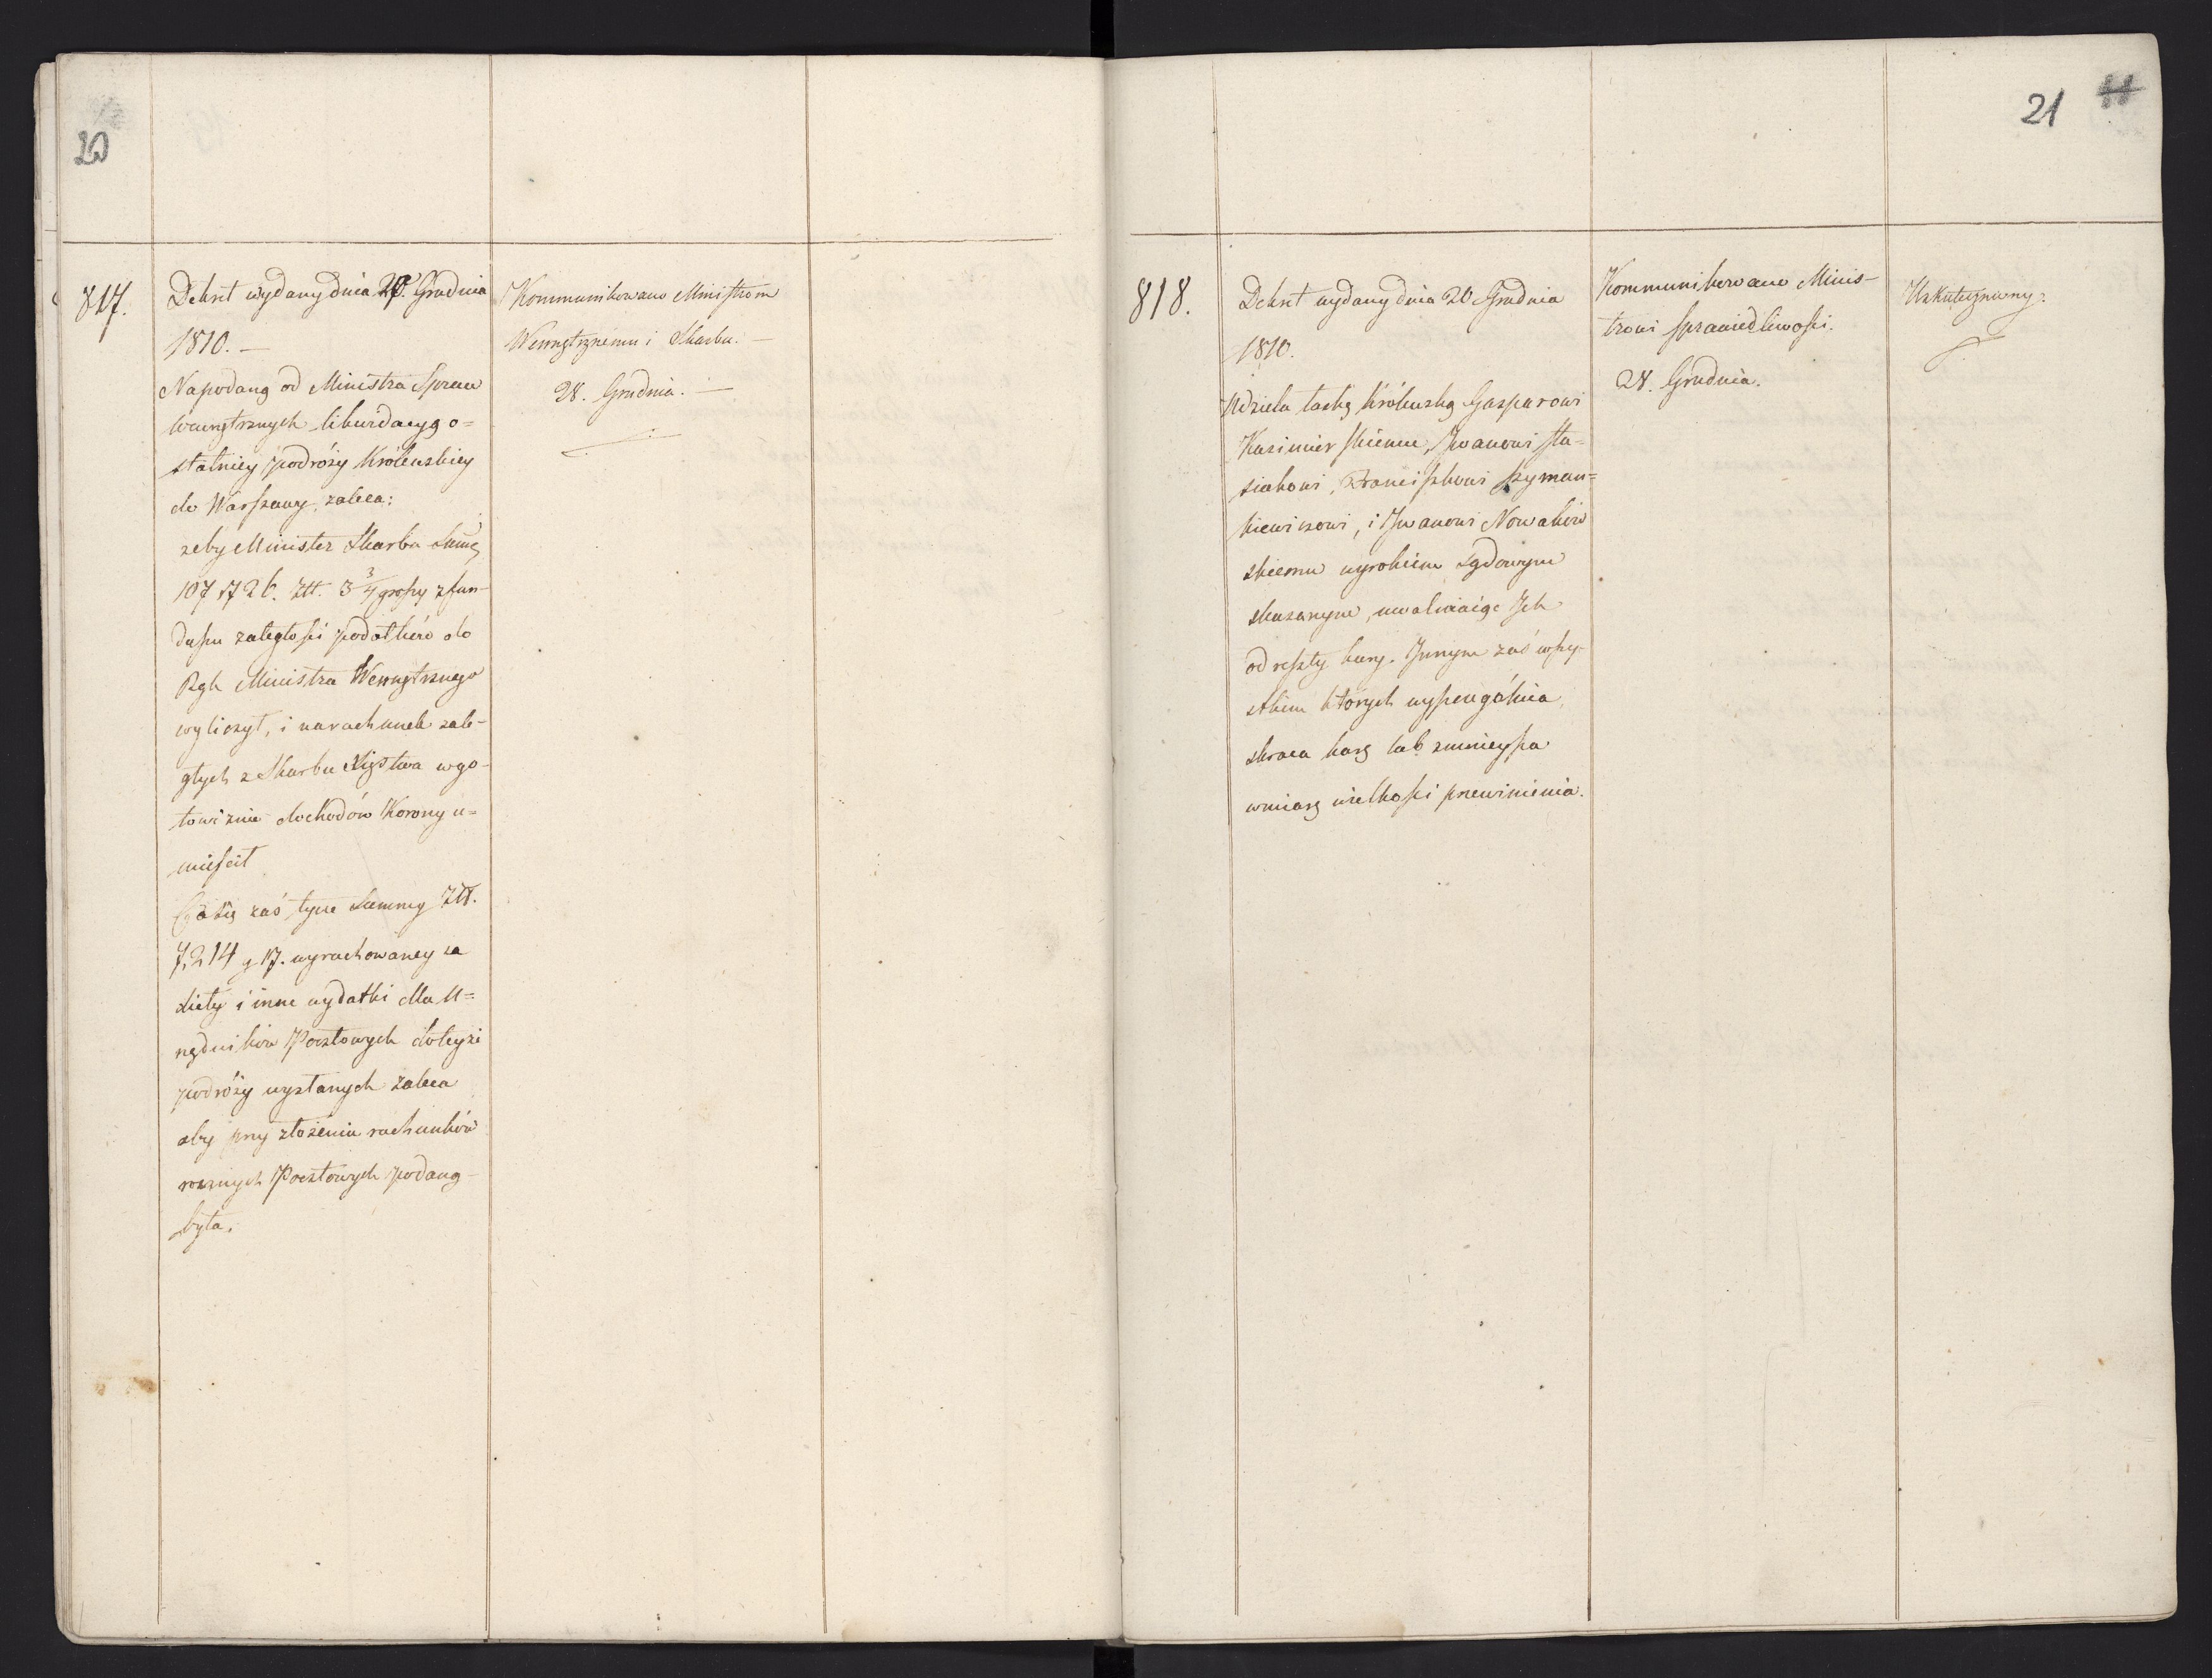 20
817.
Dekret wydany dnia 20. Grudnia
1810. —
Na podaną od Ministra Spraw
Wewnętrznych likwidacyą o=
statniey podróży Królewskiey
do Warszawy, zaleca:
żeby Minister Skarbu Summę
107726. Złt. 3 3/4 groszy z fun-
duszu zaległości podatków do
Rąk Ministra Wewnętrznego
wyliczył, i na rachunek zale-
głych z Skarbu Xięstwa w go-
towiznie dochodów Korony u=
mieścił
Część zaś tyne Summy Złt.
7,214 g 17. wyrachowaney za
diety i inne wydatki dla U=
rzędników Pocztowych do teyże
podróży wysłanych zaleca
aby przy złożeniu rachunków
rocznych Pocztowych podaną
była.
Kommunikowano Ministrom
Wewnętrznemu i Skarbu. —
28. Grudnia. —
21 11
818.
Dekret wydany dnia 20 Grudnia
1810.
Udziela łaskę Królewską Gasparowi
Kazimierskiemu, Iwanowi Sta-
siakowi, Franciszkowi Szyman=
kiewiczowi, i Iwanowi Nowakow
skiemu wyrokiem sądowym
skazanym, uwalniaiąc Ich
od reszty kary. Innym zaś wszy-
stkim których wyszczególnia,
skraca karę lub zmnieysza
w miarę wielkości przewinienia.
Kommunikowano Minis-
trowi Sprawiedliwości.
28. Grudnia.
Uskuteczniony: